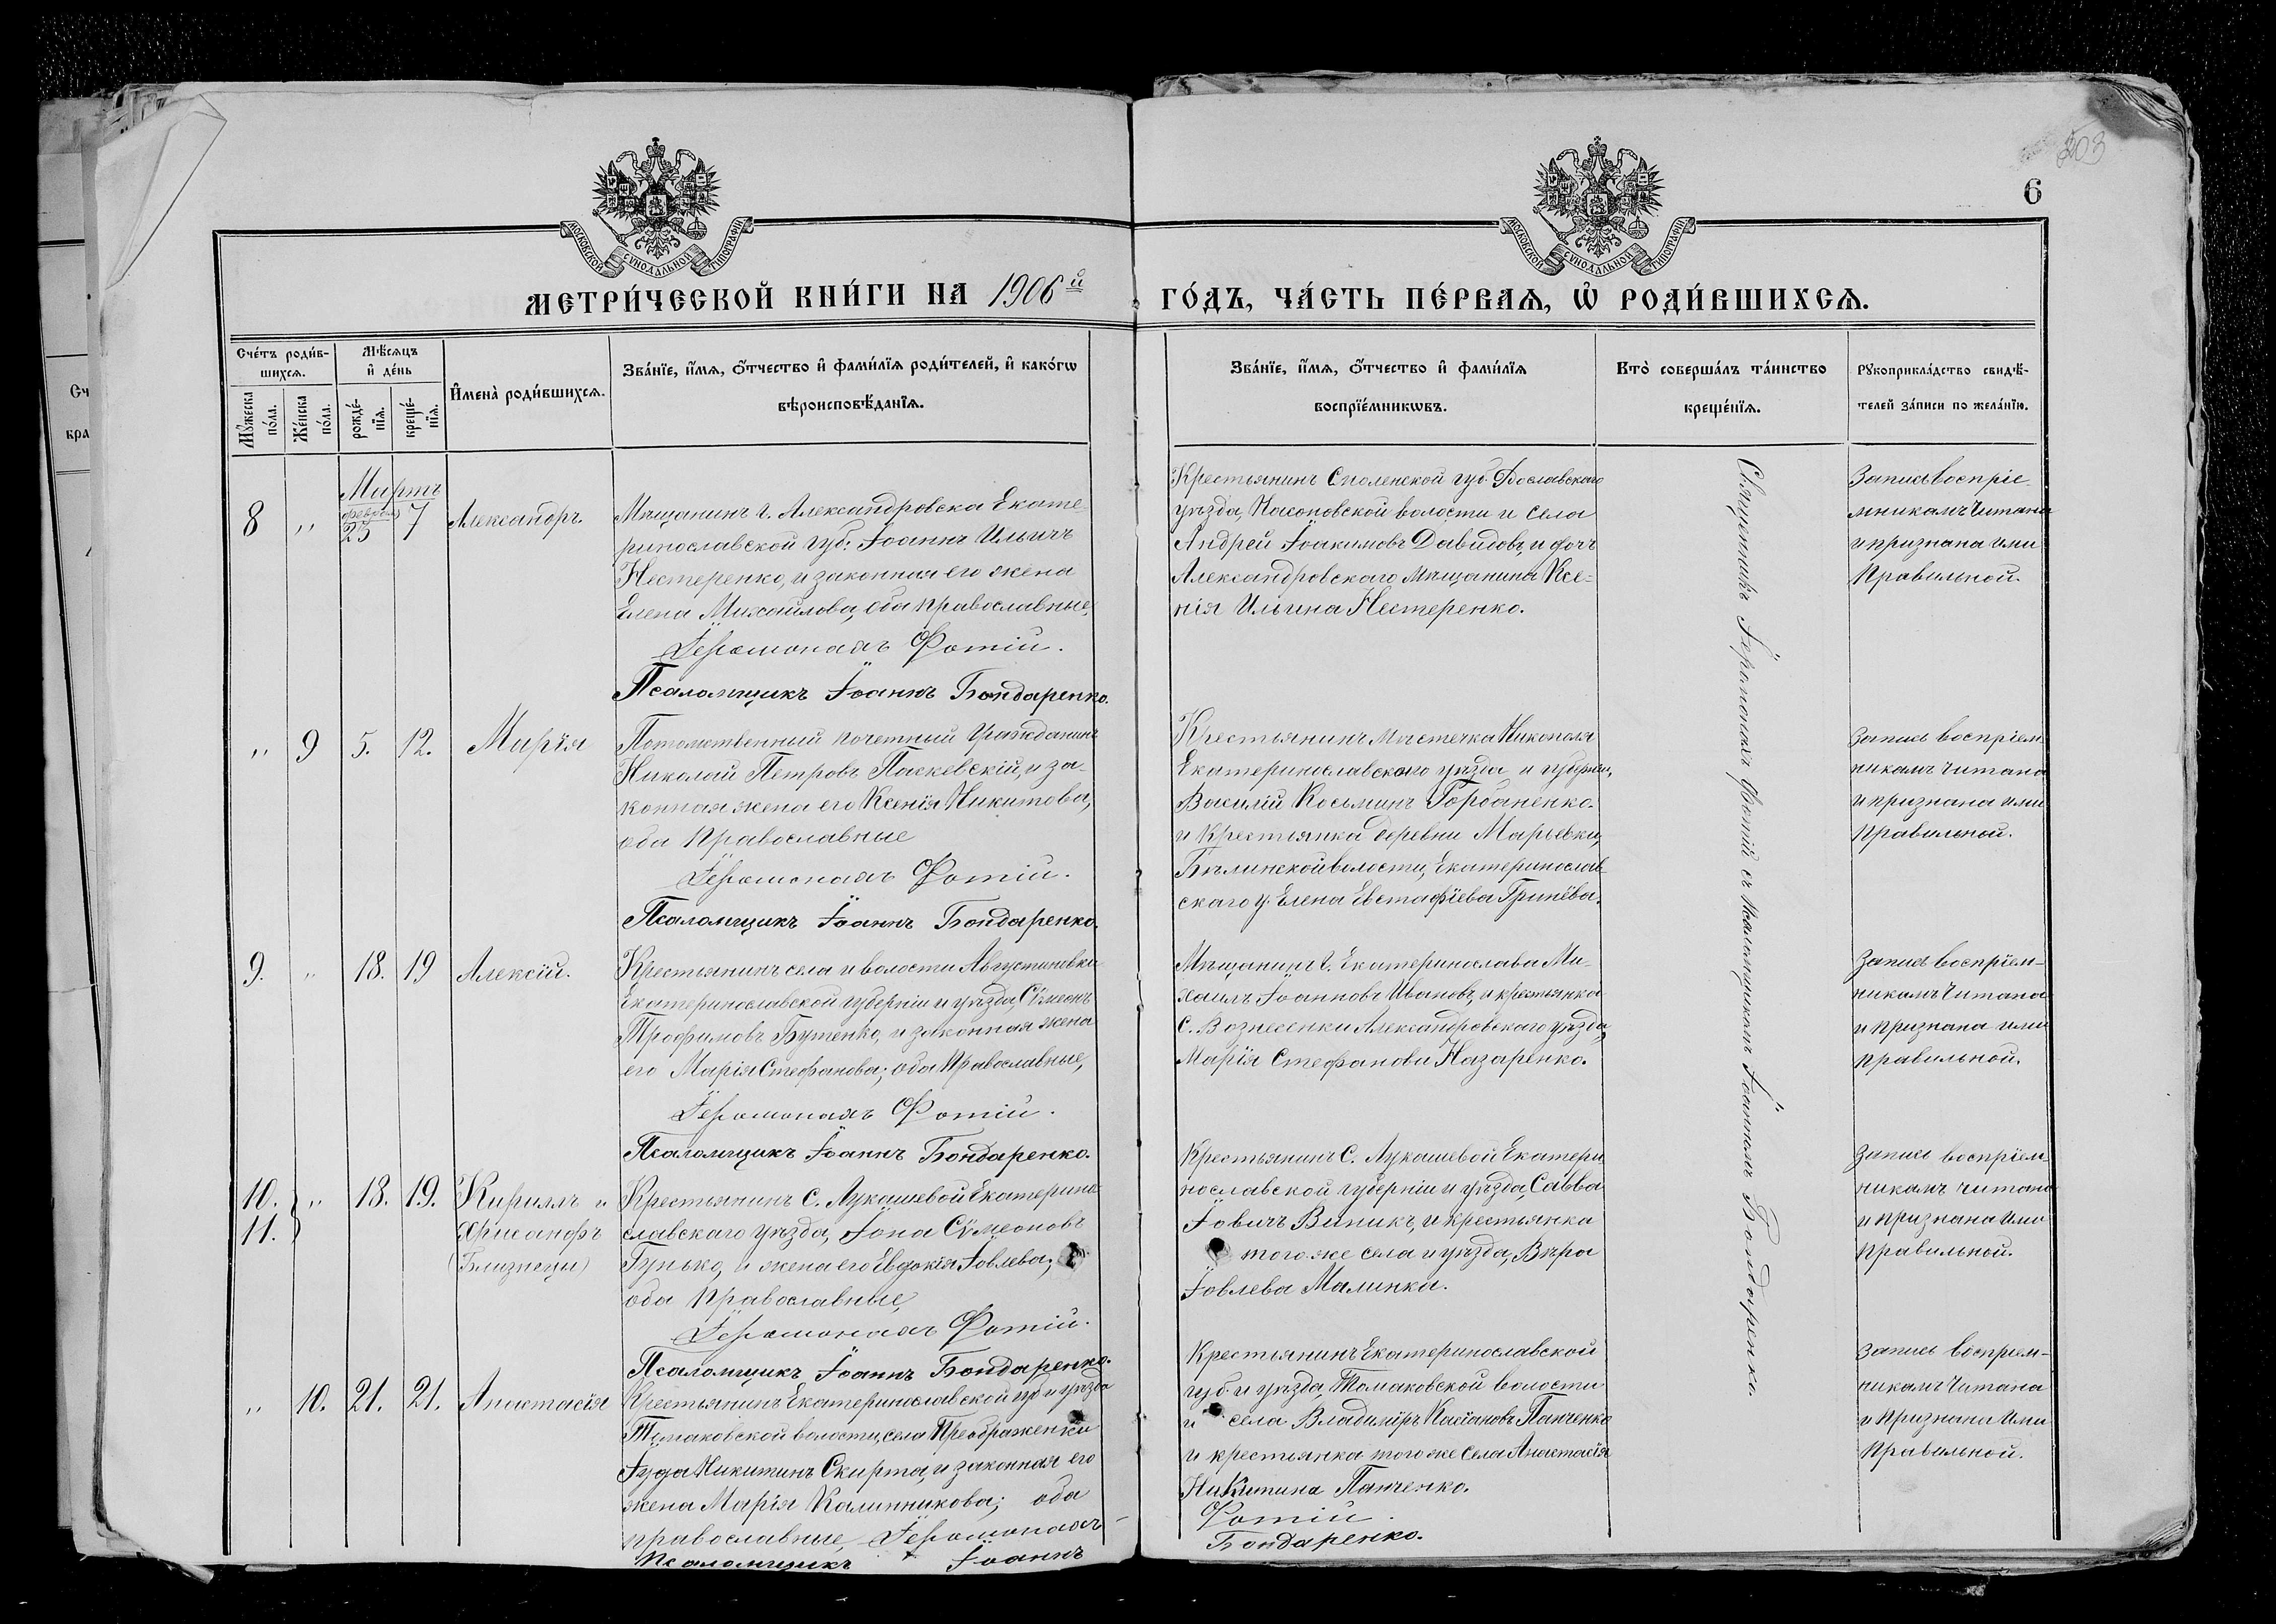 203
6
МОСКОВСКОЙ СУНОДАЛЬНОЙ ТИПОГРАФІИ
МОСКОВСКОЙ СУНОДАЛЬНОЙ ТИПОГРАФІИ
МЕТРИ́ЧЕСКОЙ КНИ́ГИ НА 1906й ГО́ДЪ, ЧА́СТЬ ПЕ́РВАѦ, Ѡ҆ РОДИ́ВШИХСѦ.
Сче́тъ роди́в-
шихсѧ.
Мꙋ́жеска по́ла.
Же́нска по́ла.
Мѣ́сѧцъ
и҆ де́нь
рожде́-
нїѧ.
креще́-
нїѧ.
И҆мена̀ роди́вшихсѧ.
Зва́нїе, и҆́мѧ, ѻ҆́тчество и҆ фами́лїѧ роди́телей, и҆ како́гѡ
вѣроисповѣ́данїѧ.
Зва́нїе, и҆́мѧ, ѻ҆́тчество и҆ фами́лїѧ
воспрїе́мникѡвъ.
Кто̀ соверша́лъ та́инство
креще́нїѧ.
Рꙋкоприкла́дство свидѣ́-
телей за́писи по жела́нїю.
Мартъ
8 " февраля 25 7 Александръ
Мѣщанинъ г. Александровска Екате
ринославской губ: Іоаннъ Ильичъ
Нестеренко, и законная его жена
Елена Михайлова, оба православные,
Іеромонахъ Фотій.
Псаломщикъ Іоаннъ Бондаренко.
Крестьянинъ Смоленской губ.
уѣзда, волости и села
Андрей Іоакимовъ Давидовъ, и дочь
Александровскаго мѣщанина Ксе-
нія Ильина Нестеренко.
Запись воспріе
мникамъ читана
и признана ими
правильной.
" 9 5. 12. Марія
Потомственный почетный гражданинъ
Николай Петровъ Паскевскій, и за-
конная жена его Ксенія Никитова,
оба православные
Іеромонахъ Фотій.
Псаломщикъ Іоаннъ Бондаренко.
Крестьянинъ мѣстечка Никополя
Екатеринославскаго уѣзда и губерніи,
Василій Косьминъ Горбаненко.
и крестьянка деревни Марьевки,
Бѣлинской волости, Екатеринослав
скаго у. Елена Евстафіева Гринёва.
Запись воспріем
никамъ читана
и признана ими
правильной.
9. " 18. 19 Алексій.
Крестьянинъ села и волости Августиновки
Екатеринославской губерніи и уѣзда, Сѵмеонъ
Трофимовъ Бутенко, и законная жена
его Марія Стефанова; оба православные,
Іеромонахъ Фотій.
Псаломщикъ Іоаннъ Бондаренко.
Мѣщанинъ г. Екатеринослава Ми-
хаилъ Іоанновъ Ивановъ, и крестьянка
с. Вознесенки Александровскаго уѣзда,
Марія Стефанова Назаренко.
Запись воспріем-
никамъ читана
и признана ими
правильной.
10. 11. " 18. 19. Кириллъ и
Хрисанфъ
(Близнецы)
Крестьянинъ с. Лукашевой Екатерино
славскаго уѣзда, Іона Сѵмеоновъ
Гунько, и жена его Евдокія Іовлева;
оба православные,
Іеромонахъ Фотій.
Псаломщикъ Іоаннъ Бондаренко.
Крестьянинъ с. Лукашевой Екатери
нославской губерніи и уѣзда, Савва
Іовичъ Виникъ, и крестьянка
того же села и уѣзда, Вѣра
Іовлева Малинка.
Запись воспріем
никамъ читана
и признана ими
правильной.
" 10. 21. 21. Анастасія
Крестьянинъ Екатеринославской губ. и уѣзда
Томаковской волости, села Преображенки
Іуда Никитинъ Скирта, и законная его
жена Марія Калинникова; оба
православные, Іеромонахъ
Псаломщикъ Іоаннъ
Крестьянинъ Екатеринославской
губ. и уѣзда, Томаковской волости
и села Владиміръ Касіановъ Панченко
и крестьянка того же села Анастасія
Никитина Панченко.
Фотій.
Бондаренко.
Запись воспріем-
никамъ читана
и признана ими
правильной.
Священникъ Іеромонахъ Фотій съ псаломщикомъ Іоанномъ Бондаренко.